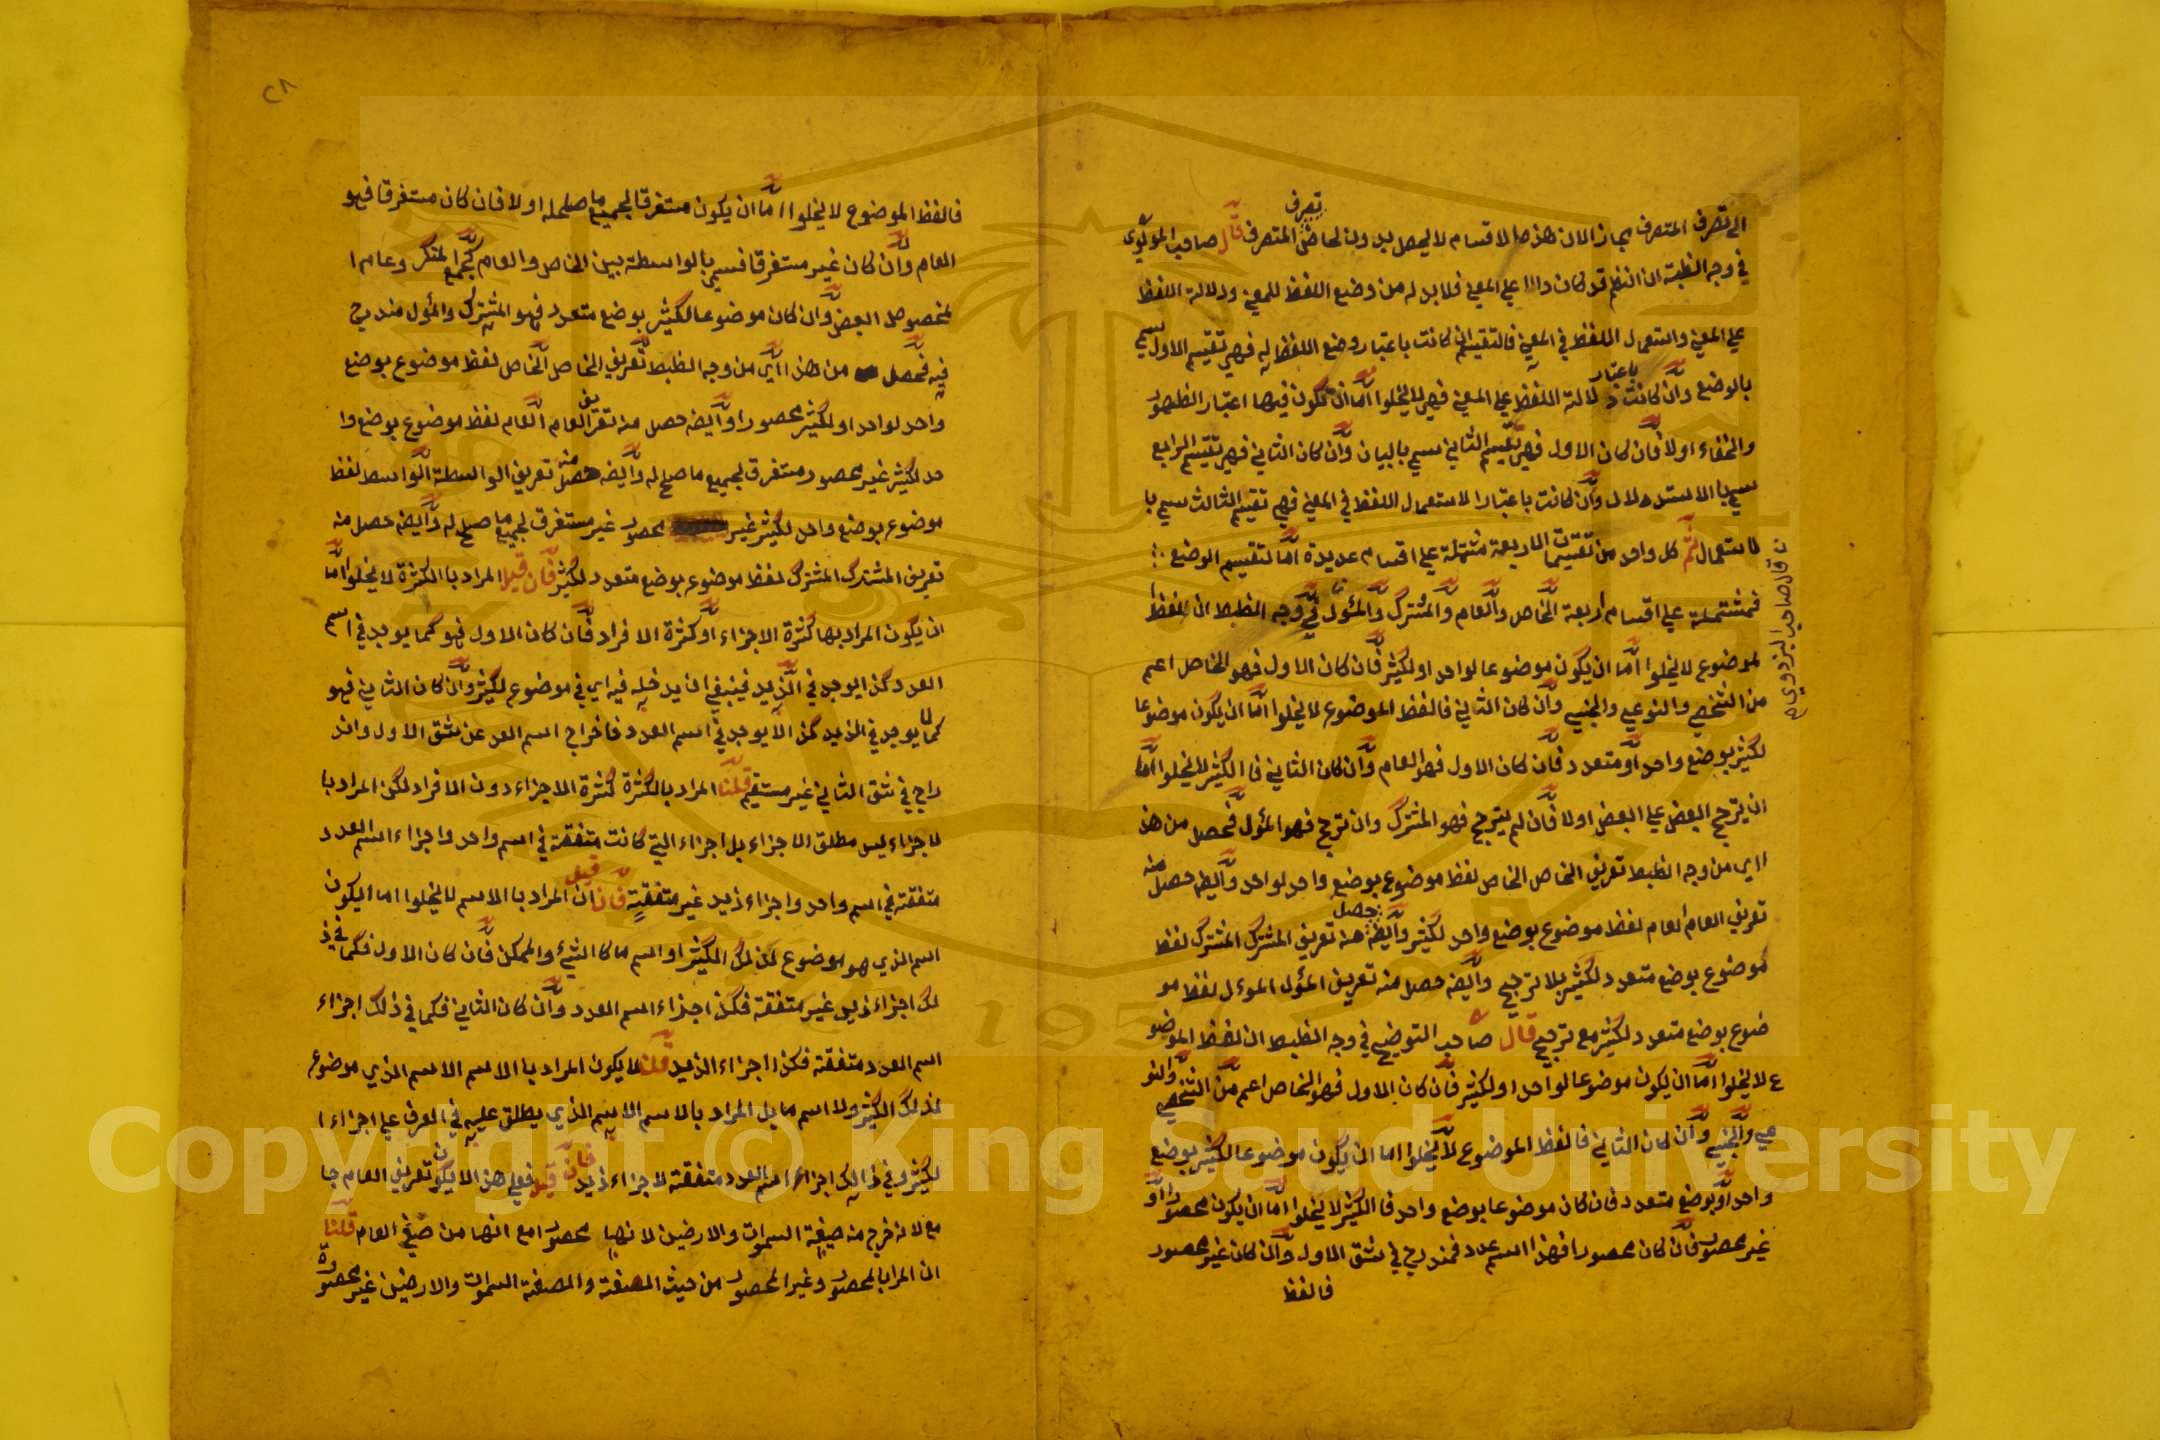 الي تصرف المتصرف بجاز الان هذه الاقسام لا يحصل بدون لحاض المتصرف قال صاحب المولوي
تصرف
في وجه الظبطه ان النظم قد كان دالا علي المعني فلا بد له من وضع اللفظ للمعني ودلالة اللفظ
علي المعني واستعمال اللفظ في المعني فالتقسيم ان كانت باعتبار وضع اللفظ له فهي تقسيم الاول سمي
بالوضع وان كانت باعتبار دلالة اللفظ علي المعني فهي لا يخلوا اما ان تكون فيها اعتبار الظهور
والخفاء اولا فان كان الاول فهي تقسيم الثاني سمي بالبيان وان كان الثاني فهي تقسيم الرابع
سمي با الاستدلال وان كانت باعتبار الاستعمال اللفظ في المعني فهي تقسيم الثالث سمي با
لاستعمال ثم كل واحد من تقسيمات الاربعة مشتملة علي اقسام عديدة اما لتقسيم الوضع
فمشتملة علي اقسام اربعة الخاص والعام والمشترك والمئول في وجه الظبط ان اللفظ ا
لموضوع لا يخلوا اما ان يكون موضوعا لواحد او لكثير فان كان الاول فهو الخاص اعم
من الشخصي والنوعي والجنسي وان كان الثاني فالفظ الموضوع لا يخلوا اما ان يكون موضوعا
لكثير بوضع واحد او متعدد فان كان الاول فهو العام وان كان الثاني فا الكثير لا يخلوا اما
ان يترجح البعض علي البعض اولا فان لم يترجح فهو المشترك وان ترجح فهو المئول فحصل من هذ
ا اي من وجه الظبط تعريف الخاص الخاص لفظ موضوع بوضع واحد لواحد وايضه حصل منه
تعريف العام لعام لفظ موضوع بوضع واحد لكثير وايضه حصل منه تعريف المشترك المشترك لفظ
موضوع بوضع متعدد لكثير بلا ترجيح وايضه حصل منه تعريف المئول الموءل لفظ مو
ضوع بوضع متعدد لكثير مع ترجيح قال صاحب التوضيح في وجه الظبط ان لفظ الموضو
ع لا يخلوا اما ان يكون موضوعا لواحد او لكثير فان كان الاول فهو الخاص اعم من الشخصي والنو
عي والجنسي وان كان الثاني فا لفظ الموضوع لا يخلوا اما ان يكون موضوعا لكثير بوضع
واحد او بوضع متعدد فان كان موضوعا بوضع واحد فا الكثير لا يخلوا اما ان يكون محصورا او
غير محصور فان كان محصورا فهذا اسم عدد فمندرج في شق الاول وان كان غير محصور
فالفظ
قال صاحب البزدوي
٢٨
فالفظ الموضوع لا يخلوا اما ان يكون مستغرقا لجميع ما صلح له اولا فان كان مستغرقا فهو
العام وان كان غير مستغرقا فسمي بالواسطة بين الخاص والعام كجمع المنكر وعام ا
لمخصوص البعض وان كان موضوعا لكثير بوضع متعدد فهو المشترك والمئول مندرج
فيه فحصل من هذا اي من وجه الظبط تعريف الخاص الخاص لفظ موضوع بوضع
واحد لواحد او لكثير محصور او ايضه حصل منه تعريف العام العام لفظ موضوع بوضع وا
حد لكثير غير محصور مستغرق لجميع ما صلح له وايضه حصل منه تعريف الواسطة الواسط لفظ
موضوع بوضع واحد لكثير غير محصور غير مستغرق لجميع ما صلح له وايضه حصل منه
تعريف المشترك المشترك لفظ موضوع بوضع متعدد لكثير فان قيل المراد با الكثرة لا يخلوا اما
ان يكون المراد بها كثرة الاجزاء او كثرة الافراد فان كان الاول فهو كما يوجد في اسم
العدد كذا يوجد في الزيد فينبغي ان يدخله فيه اي في موضوع لكثير وان كان الثاني فهو
كما لا يوجد في الزيد كذا لا يوجد في اسم العدد فاخراج اسم العدد عن شق الاول واند
راج في شق الثاني غير مستقيم قلنا المراد بالكثرة كثرة الاجزاء دون الافراد لكن المراد با
لاجزاء ليس مطلق الاجزاء بل اجزاء التي كانت متفقة في اسم واحد واجزاء اسم العدد
متفقة في اسم واحد واجزاء زيد غير متفقة فان قيل ان المراد با الاسم لا يخلوا اما ان يكون
اسم الذي هو موضوع لذلك الكثير او اسم ما كا الشيء والممكن فان كان الاول فكما في ذ
لك اجزاء زيد غير متفقة فكذ اجزاء اسم العدد وان كان الثاني فكما في ذلك اجزاء
اسم العدد متفقة فكذا اجزاء الزيد قلنا لا يكون المراد با الاسم الاسم الذي موضوع
لذلك الكثير ولا اسم ما بل المراد بالاسم الاسم الذي يطلق عليه في العرف علي اجزاء ا
لكثير وفي ذالك اجزاء اسم العدد متفقة لا جزاء زيد فان قيل فعلي هذا لا يكون تعريف العام جا
مع لانه خرج منه صيغة السموات والارضين لانها محصورا مع انها من صيغ العام قلنا
ان المراد بالمحصور وغير المحصور من حيث الصيغة والصيغة السموات والارضين غير محصورة
Copyright © King Saud University
1957